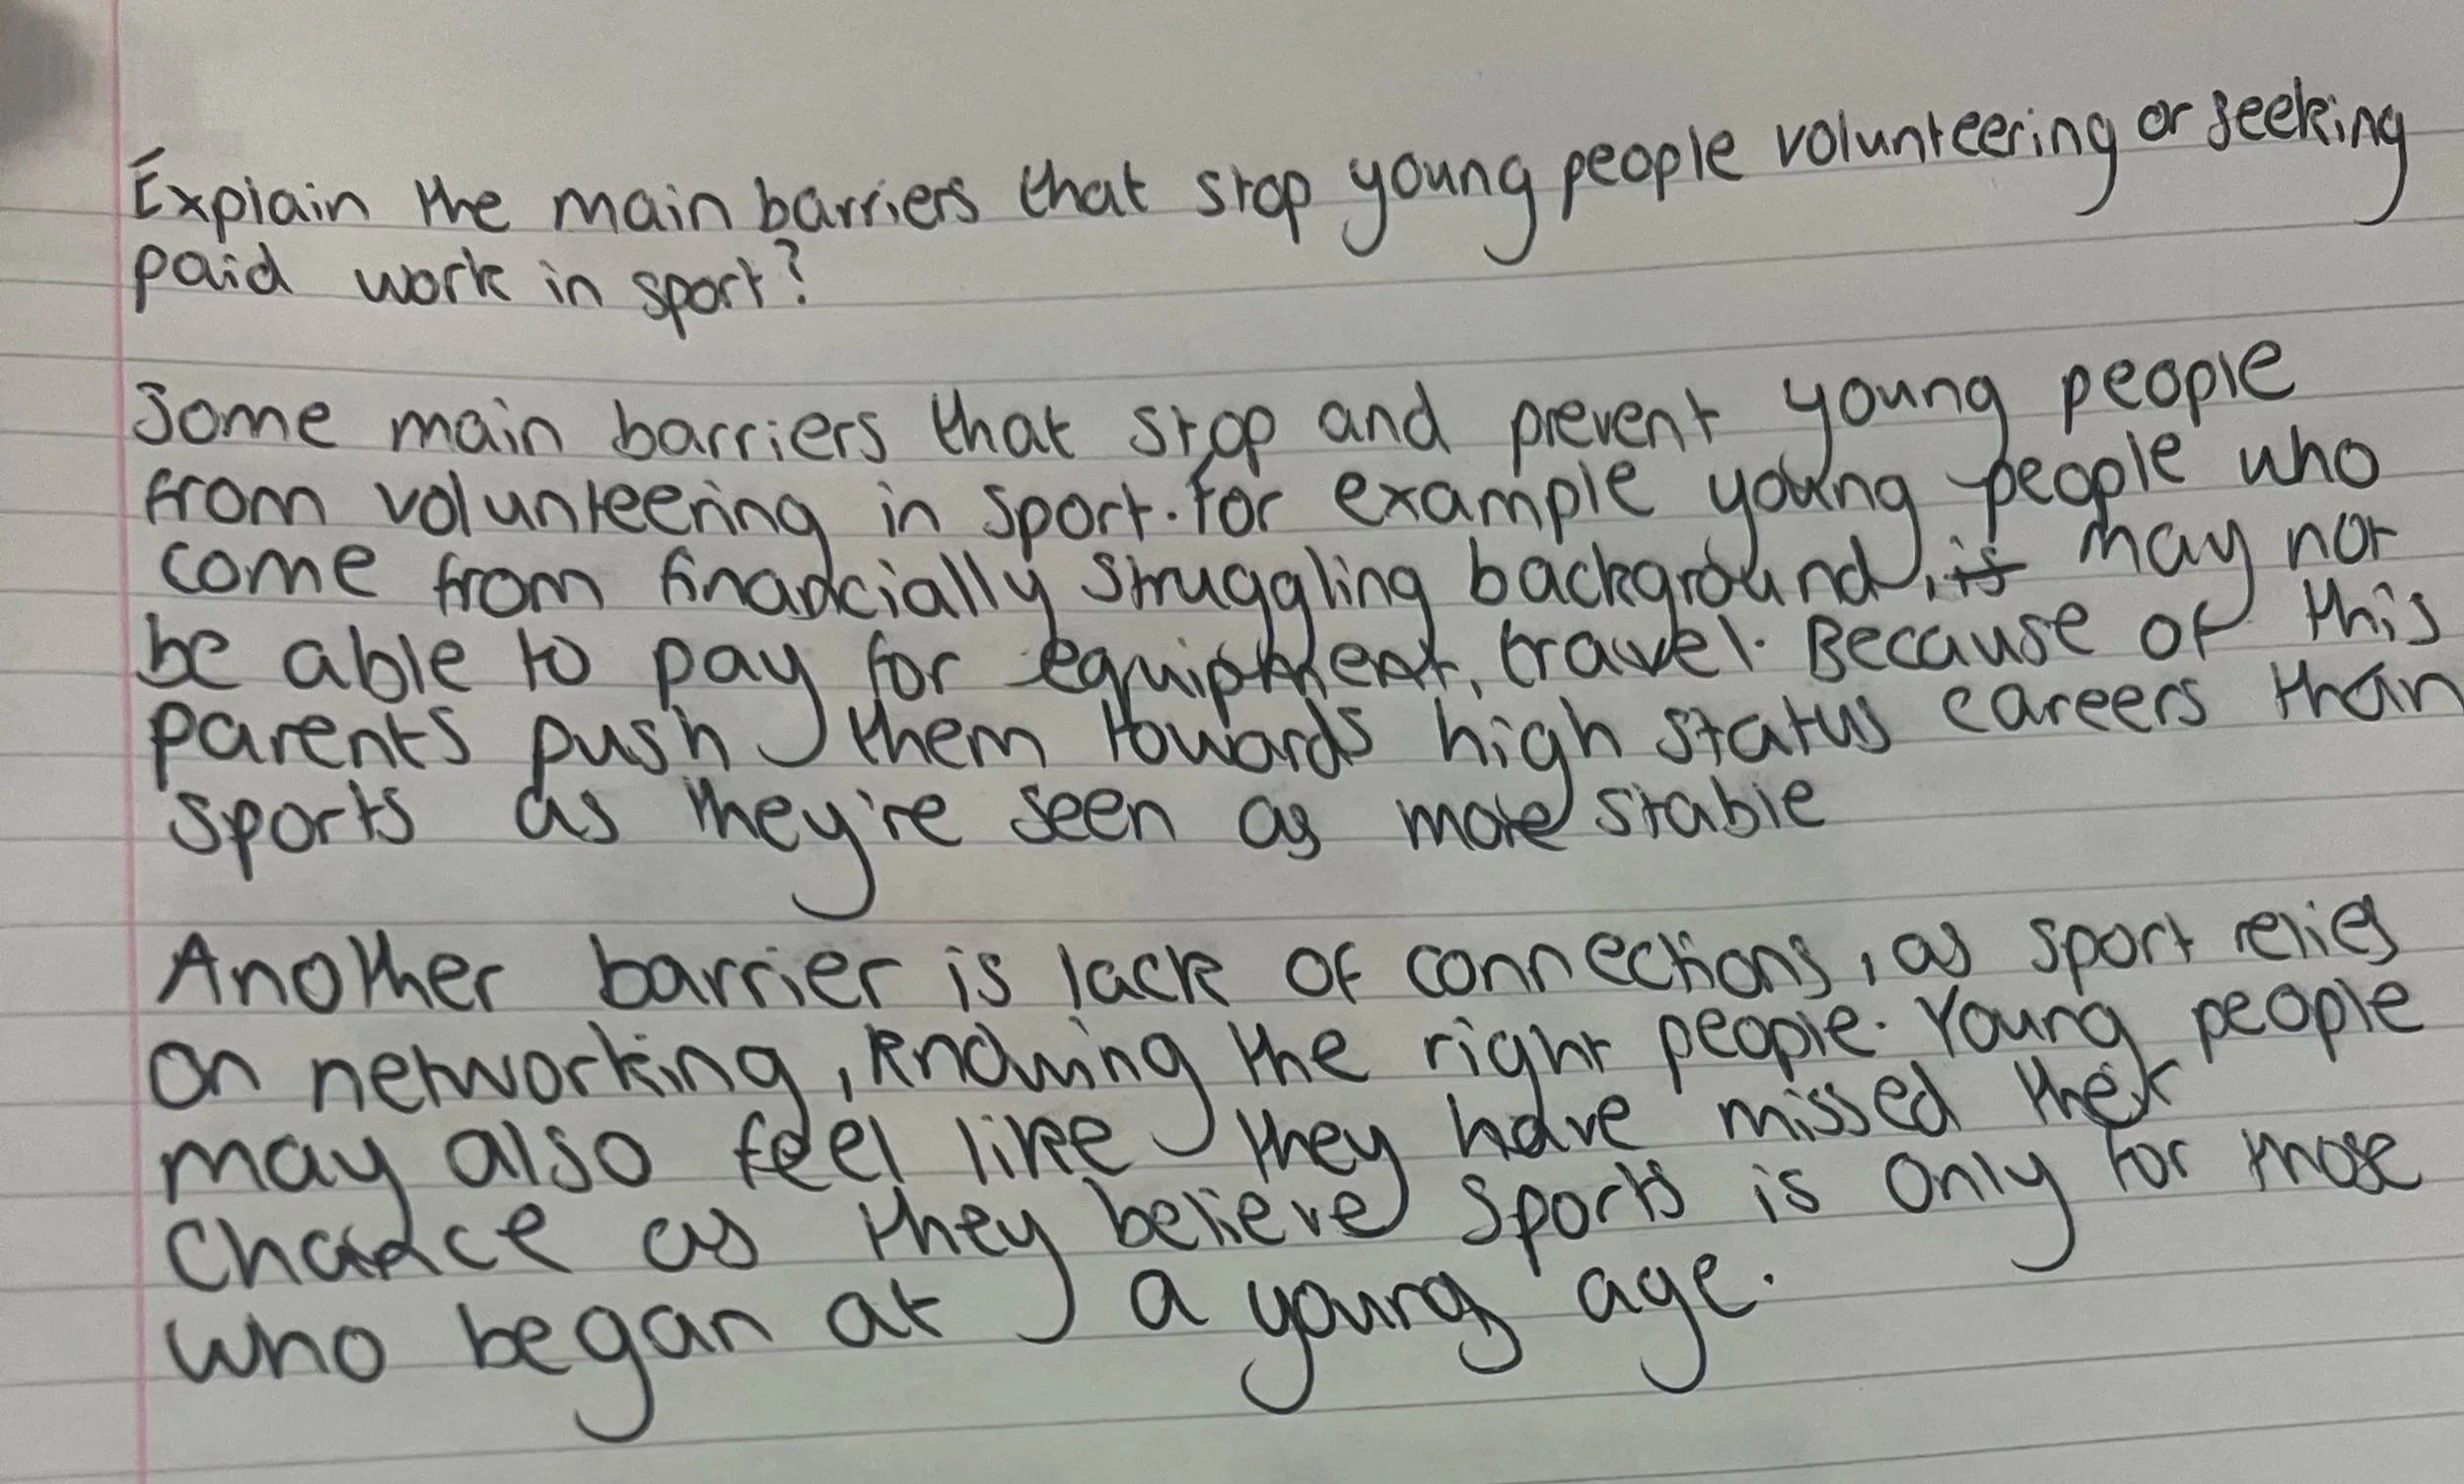 Explain the main barriers that stop young people volunteering or seeking
paid work in sport?
Some main barriers that stop and prevent young people
from volunteering in sport. For example young people who
come from financially struggling background, may not
be able to pay for equipment, travel. Because of this
parents push them towards high status careers than
sports as they're seen as more stable
Another barrier is lack of connections, as sport relies
on networking, knowing the right people. Young people
may also feel like they have missed their
chance as they believe sports is only for those
who began at a young age.